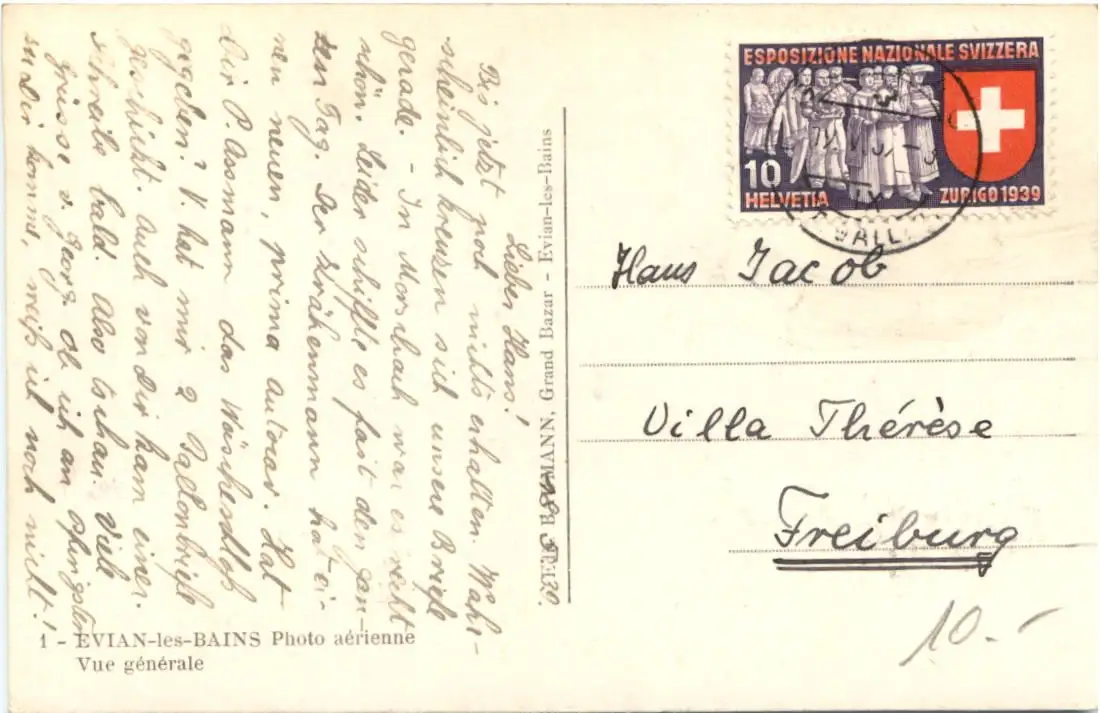 Lieber Hans!
Bis jetzt noch nichts erhalten. Wahr-
scheinlich kreuzen sich unsere Briefe
gerade. - In Morschach war es recht
schön. Leider schiffte es fast den gan-
zen Tag. Der Krähenmann hat ei-
nen neuen, prima Autocar. Hat
Dir P. Assmann das Wäscheschloß
gegeben? V. hat mir 2 Ballonbriefe
geschickt. Auch von Dir kam einer.
Schreibe bald. Also tschau. Viele
Grüsse v. Georg. Ob ich an Pfingsten
zu Dir komme, weiß ich noch nicht!
1 - EVIAN-les-BAINS Photo aérienne
Vue générale
MANN, Grand Bazar - Evian-les-Bains
ESPOSIZIONE NAZIONALE SVIZZERA
10
HELVETIA
ZURIGO 1939
Hans Jacob
Villa Thérèse
Freiburg
10.-